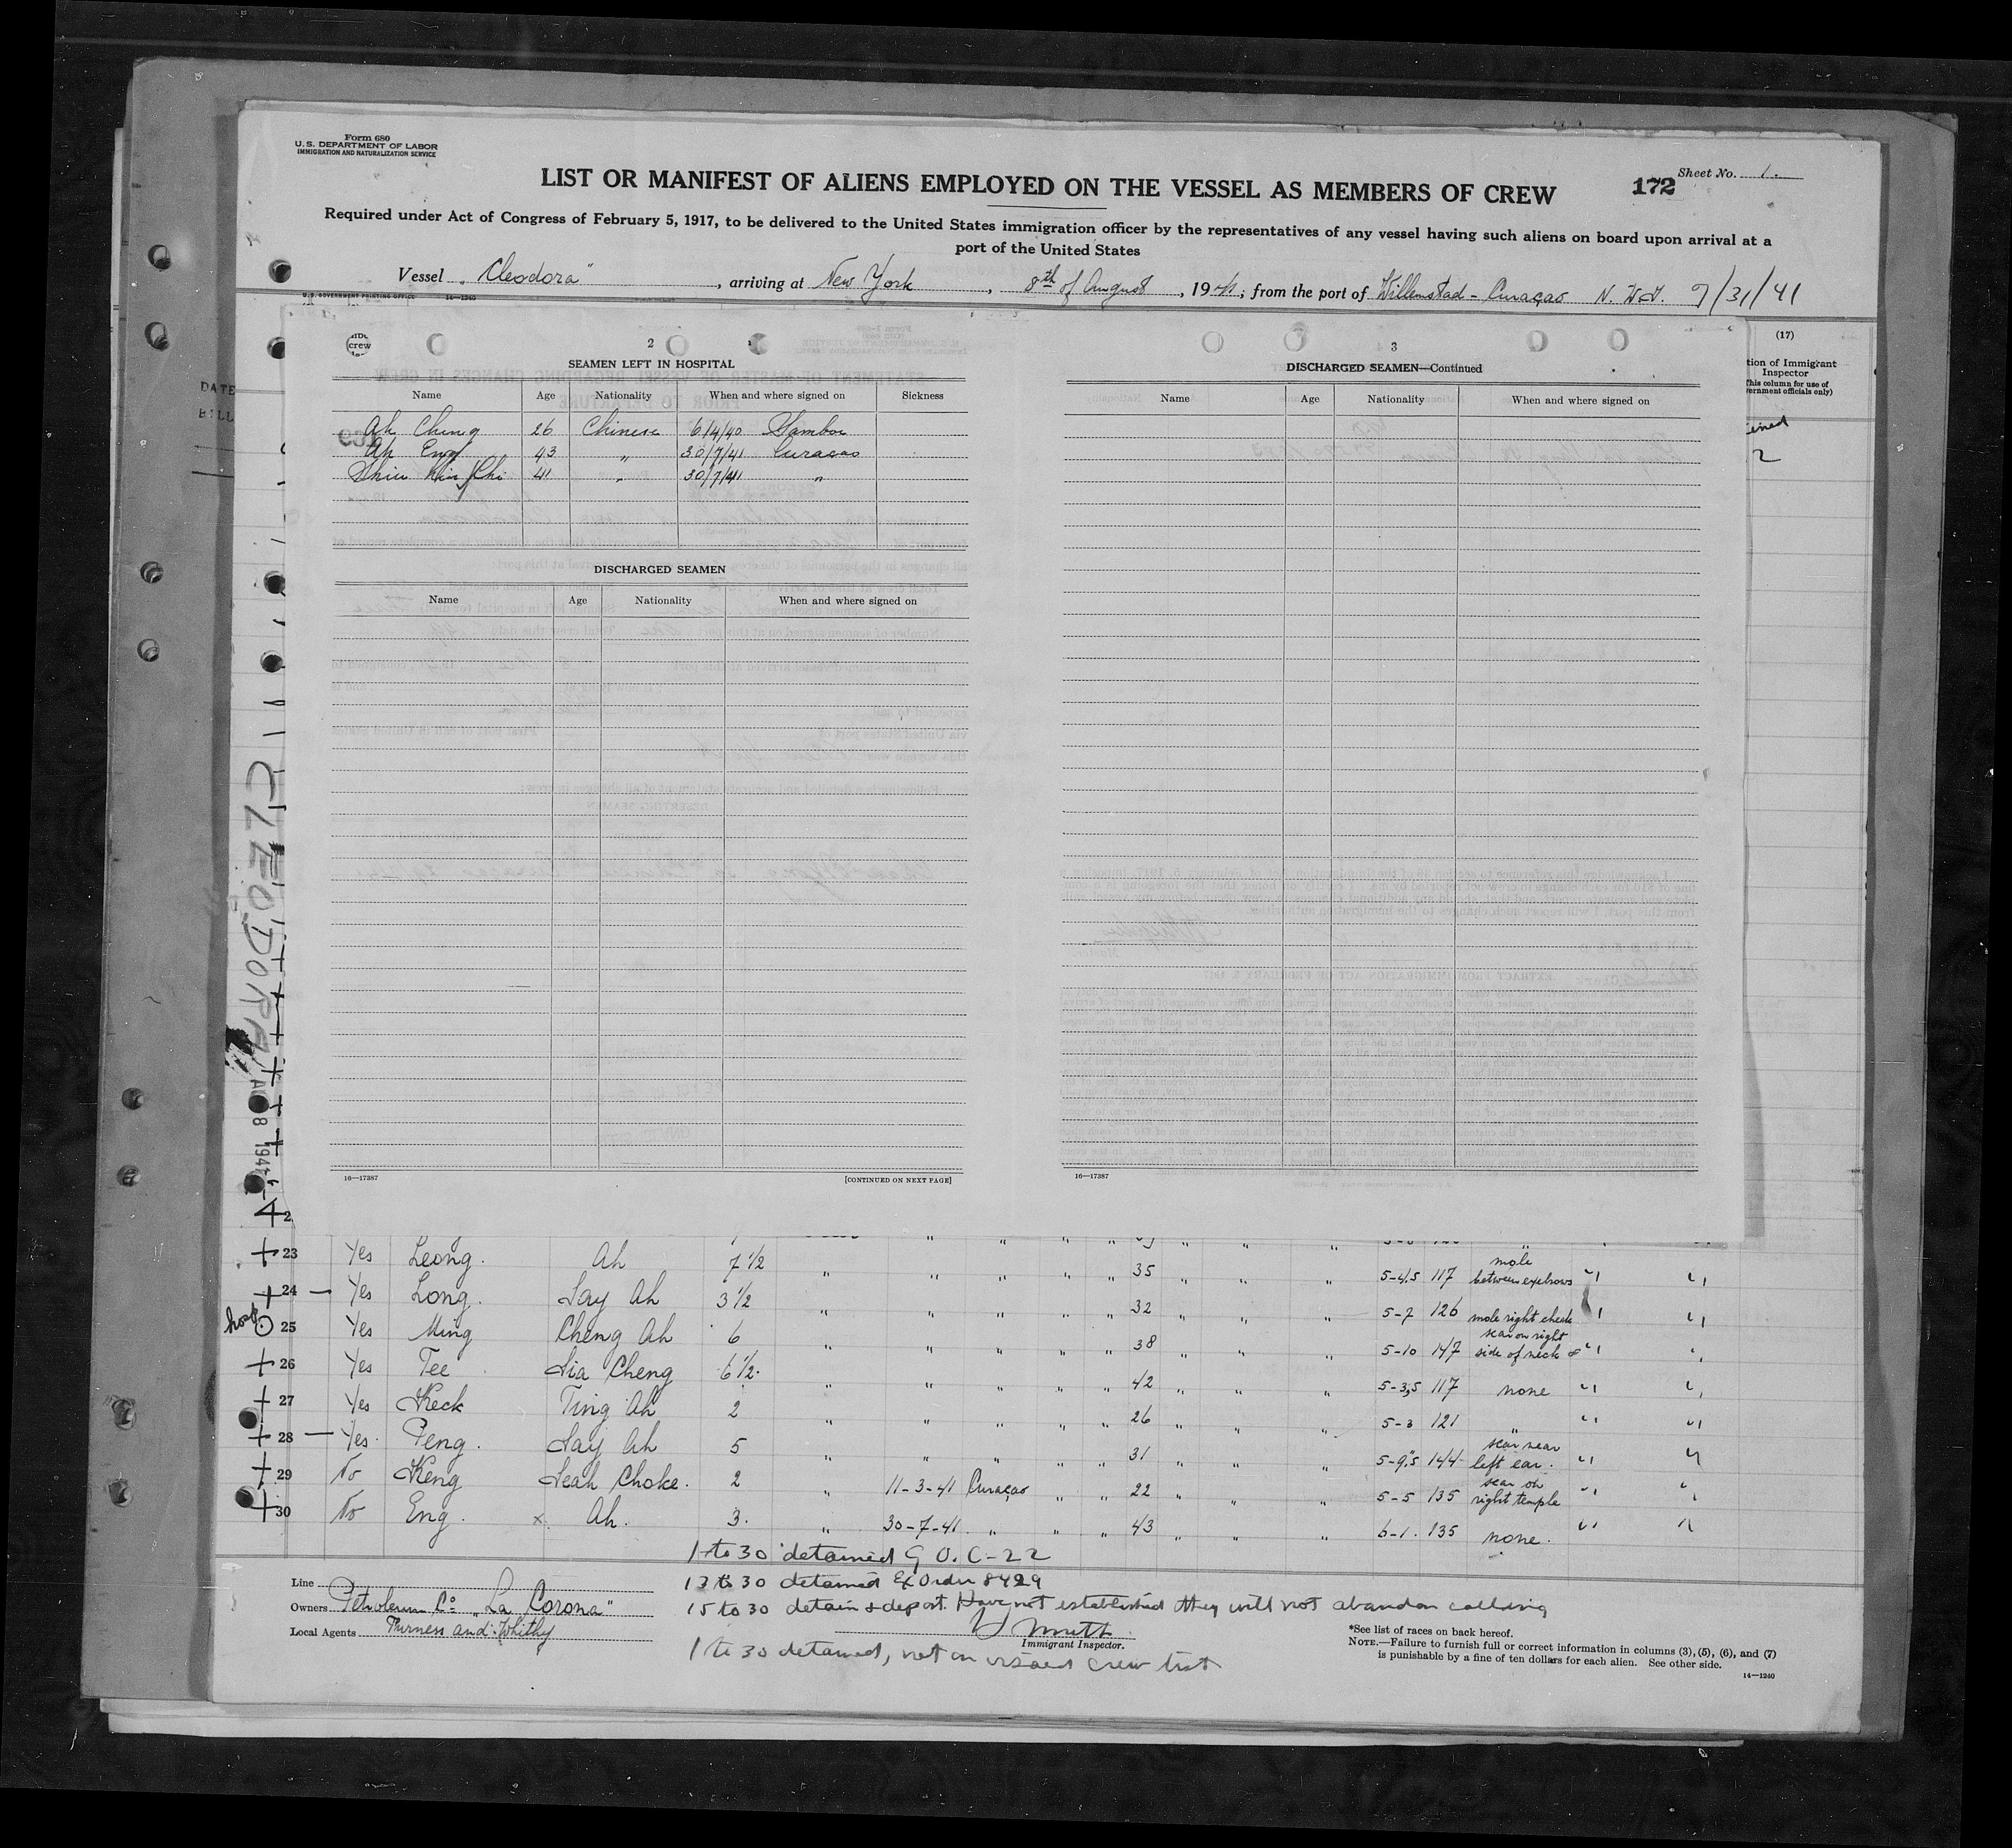 Form 680
U. S. DEPARTMENT OF LABOR
IMMIGRATION AND NATURALIZATION SERVICE
LIST OR MANIFEST OF ALIENS EMPLOYED ON THE VESSEL AS MEMBERS OF CREW
172 Sheet No. 1.
Required under Act of Congress of February 5, 1917, to be delivered to the United States immigration officer by the representatives of any vessel having such aliens on board upon arrival at a
port of the United States
Vessel "Cleodora", arriving at New York, 8th of August, 1941; from the port of Willemstad - Curaçao N. W. I. 7/31/41
U. S. GOVERNMENT PRINTING OFFICE 14—1240
(17)
tion of Immigrant
Inspector
This column for use of
vernment officials only)
DATE
crew
2
SEAMEN LEFT IN HOSPITAL
Name Age Nationality When and where signed on Sickness
Ah Ching 26 Chinese 6/4/40
Ah Eng 43 " 30/7/41 Curacao
41 " 30/7/41 "
DISCHARGED SEAMEN
Name Age Nationality When and where signed on
16—17387 [CONTINUED ON NEXT PAGE]
3
DISCHARGED SEAMEN—Continued
Name Age Nationality When and where signed on
16—17387
CLEODORA
AUG 8 1941
23 Yes Leong. Ah 7 1/2 " " " " " 35 " " " 5-4.5 117 mole between eyebrows " "
24 — Yes Long. Say Ah 3 1/2 " " " " " 32 " " " 5-7 126 mole right cheek " "
hosp. 25 Yes Ming Cheng Ah 6 " " " " " 38 " " " 5-10 147 scar on right side of neck " "
26 Yes Tee Sia Cheng 6 1/2. " " " " " 42 " " " 5-3,5 117 none " "
27 Yes Keck Ting Ah 2 " " " " " 26 " " " 5-3 121 " " "
28 — Yes. Peng. Say Ah 5 " " " " " 31 " " " 5-9,5 144 scar near left ear. " "
29 No Keng Seah Choke. 2 " 11-3-41 Curaçao " " 22 " " " 5-5 135 scar on right temple " "
30 No Eng. x Ah. 3. " 30-7-41 " " " 43 " " " 6-1. 135 none. " "
1 to 30 detained G O. C-22
13 to 30 detained Ex Order 8429
15 to 30 detain & deport. Have not established they will not abandon calling
Smith
Immigrant Inspector.
1 to 30 detained, not on visaed crew list
Line
Owners Petroleum Co. "La Corona"
Local Agents Furness and Whithy
*See list of races on back hereof.
NOTE.—Failure to furnish full or correct information in columns (3), (5), (6), and (7)
is punishable by a fine of ten dollars for each alien. See other side.
14—1240